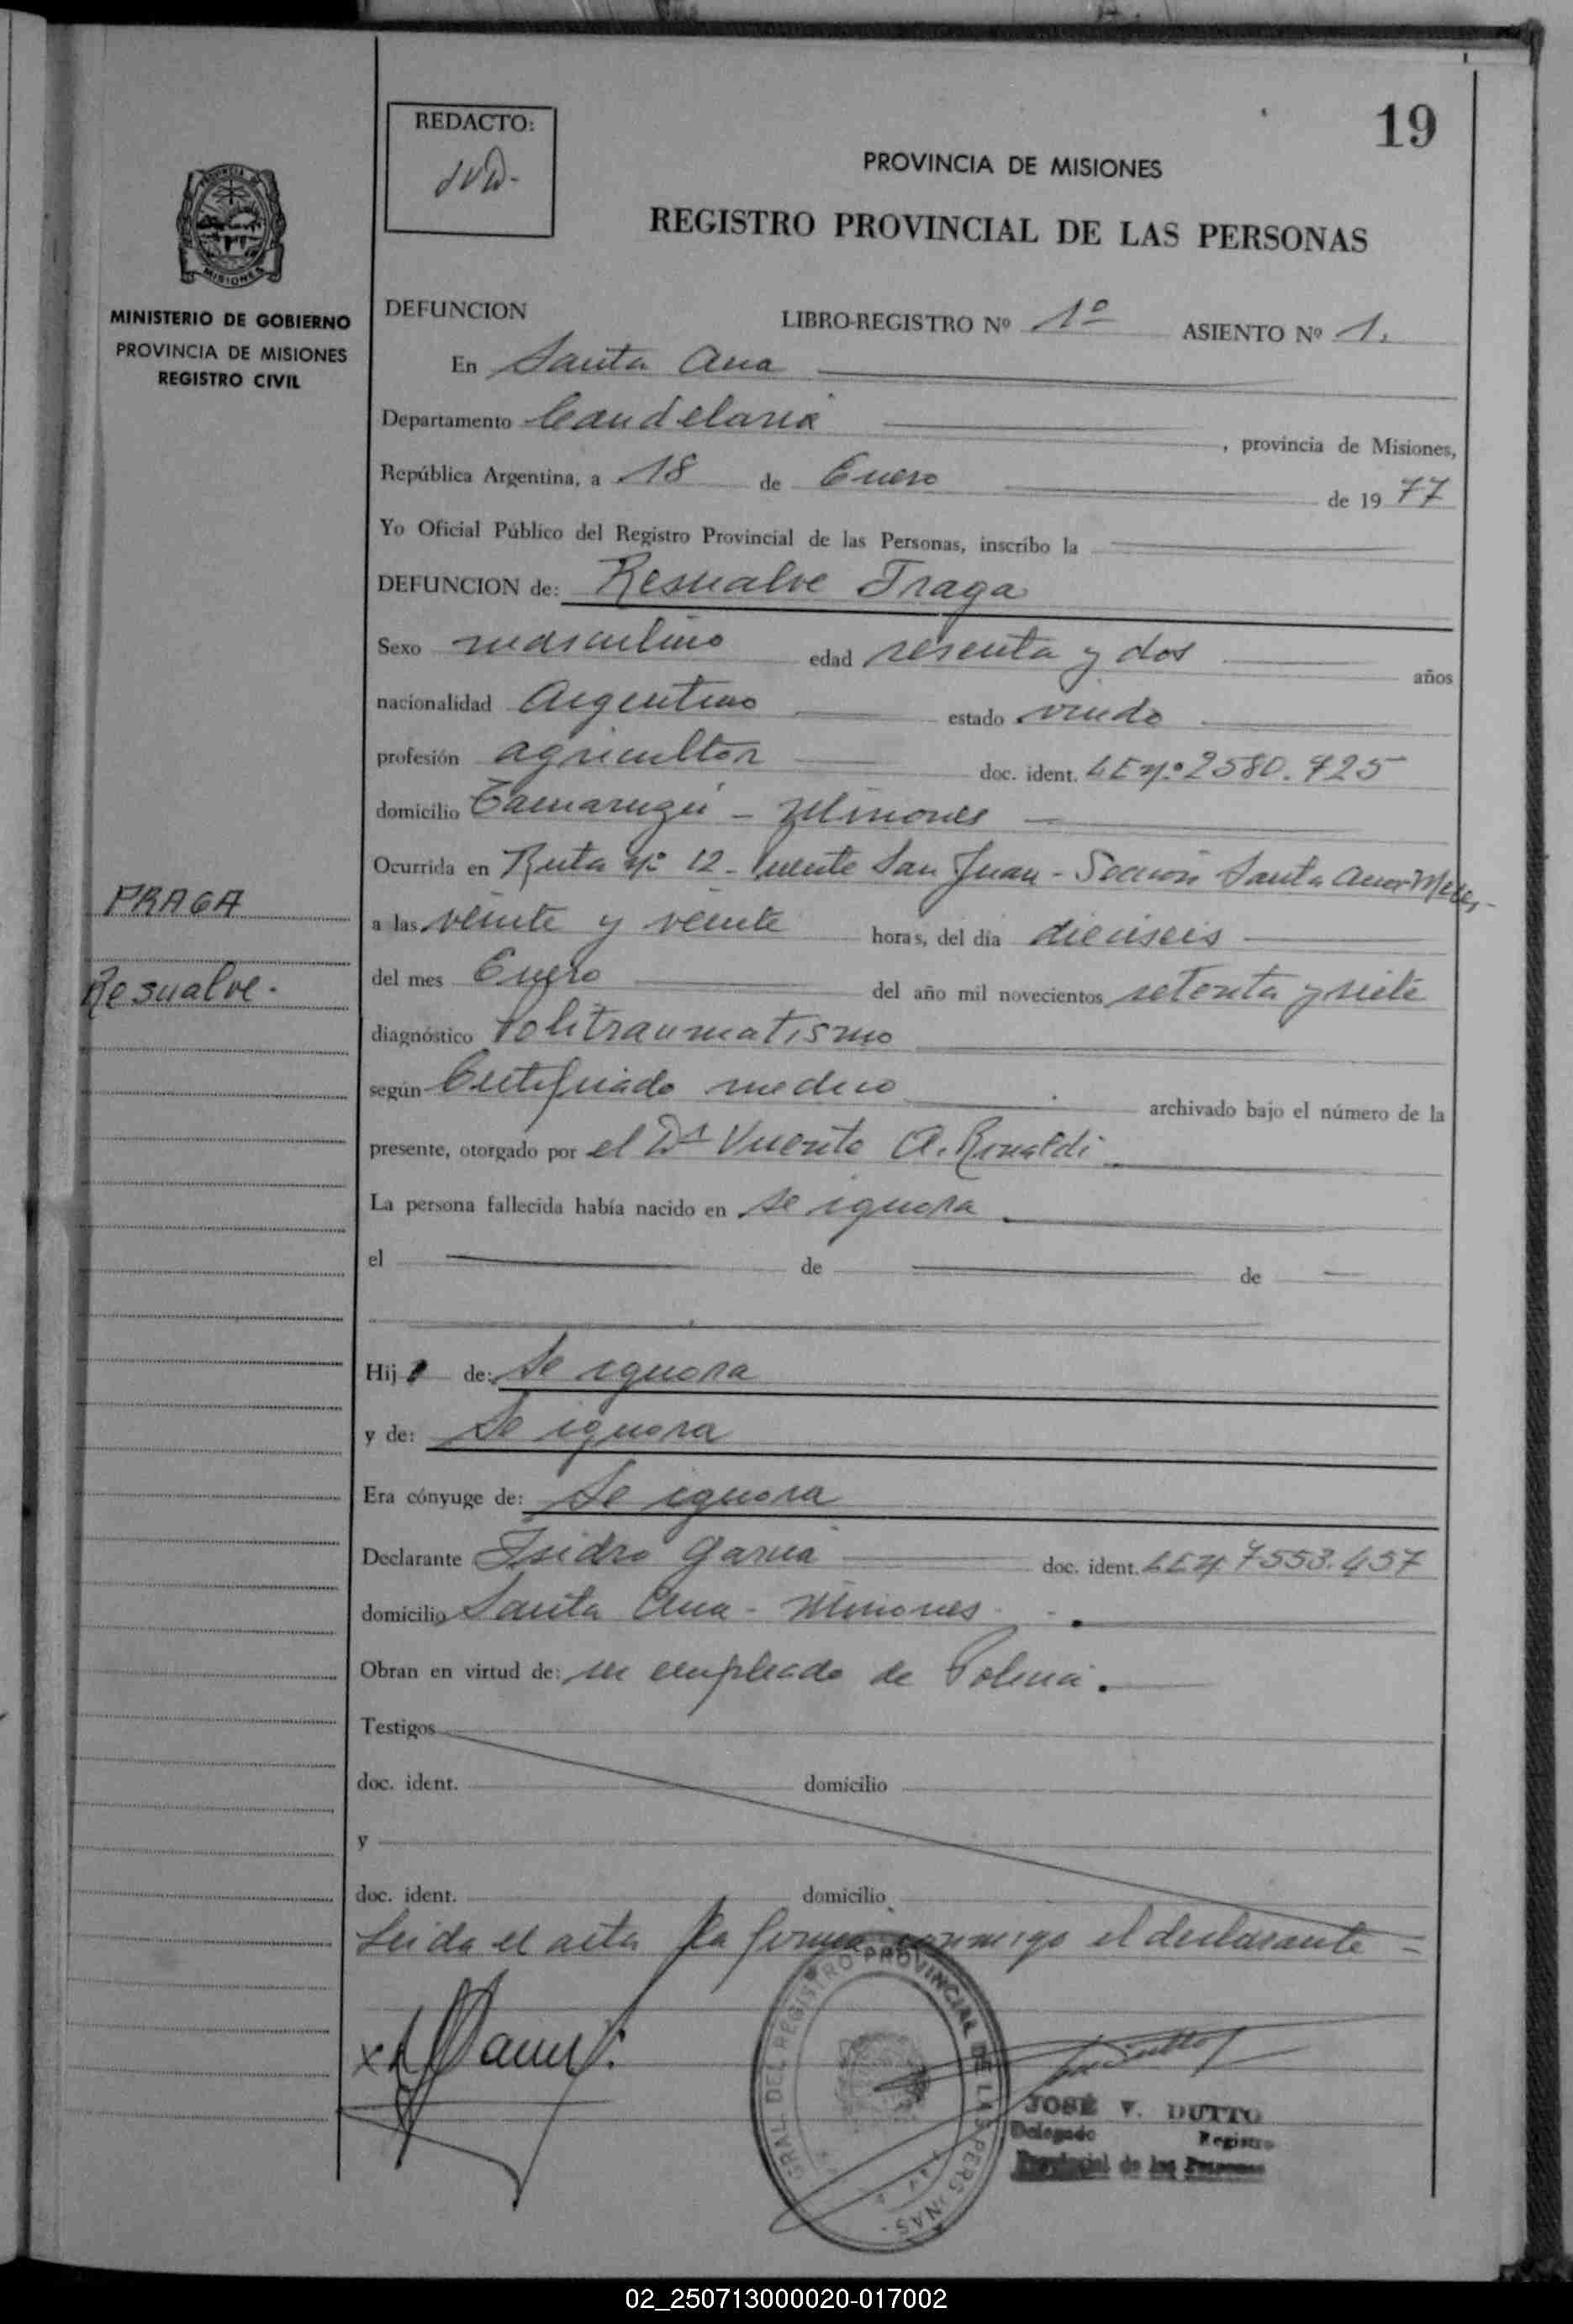 19
REDACTO:
PROVINCIA DE MISIONES
REGISTRO PROVINCIAL DE LAS PERSONAS
MISIONES
MINISTERIO DE GOBIERNO
PROVINCIA DE MISIONES
REGISTRO CIVIL
DEFUNCION LIBRO-REGISTRO Nº 1º ASIENTO Nº 1.
En Santa Ana
Departamento Candelaria, provincia de Misiones,
República Argentina, a 18 de Enero de 1977
Yo Oficial Público del Registro Provincial de las Personas, inscribo la
DEFUNCION de: Resualve Fraga
Sexo masculino edad sesenta y dos años
nacionalidad Argentino estado viudo
profesión agricultor doc. ident. LE Nº 2580.425
domicilio - Misiones -
Ocurrida en Ruta Nº 12 - Puente San Juan - Sección Santa Ana - Mnes -
FRAGA
Resualve.
a las veinte y veinte horas, del día dieciseis
del mes Enero del año mil novecientos setenta y siete
diagnóstico Politraumatismo
según Certificado medico archivado bajo el número de la
presente, otorgado por el Dr Vicente A. Rinaldi
La persona fallecida había nacido en se ignora
el de de
Hijo de: Se ignora
y de: Se ignora
Era cónyuge de: Se ignora
Declarante Isidro Garcia doc. ident. LE Nº 7553.457
domicilio Santa Ana - Misiones
Obran en virtud de: ser empleado de Policia.
Testigos
doc. ident. domicilio
y
doc. ident. domicilio
Leida el acta la firma conmigo el declarante -
GRAL. DEL REGISTRO PROVINCIAL DE LAS PERSONAS
JOSÉ V. DUTTO
Delegado Registro
Provincial de las Personas
02_250713000020-017002